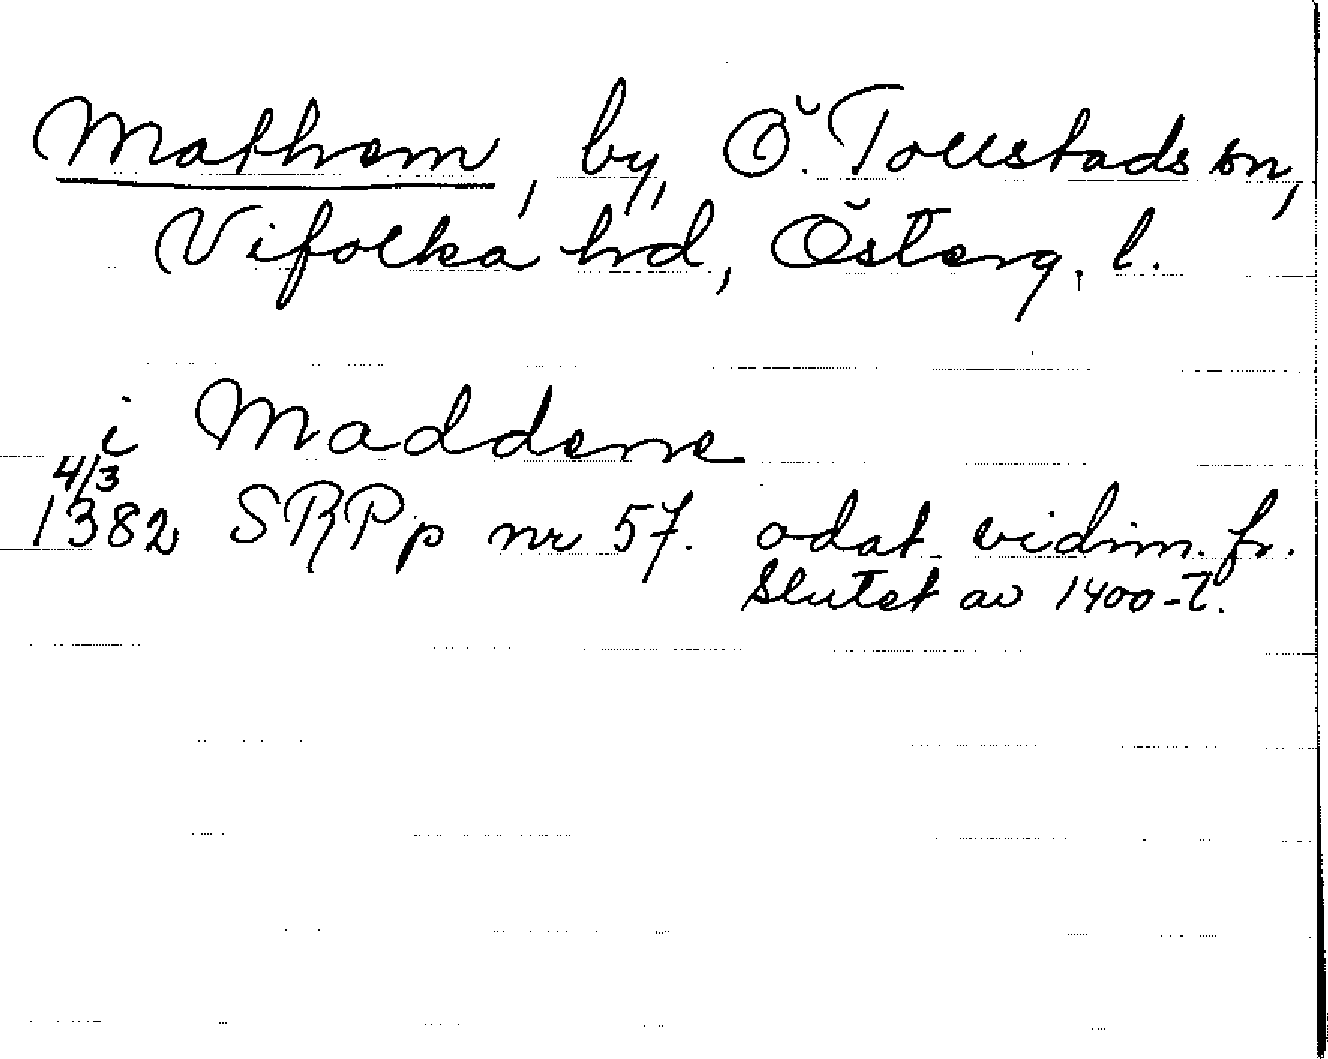 Mathem, by, Ö. Tollstads sn,
Vifolka hd, Österg. l.
i Maddene
4/3
1382 SRPp nr 57. odat. vidim. fr.
slutet av 1400-t.